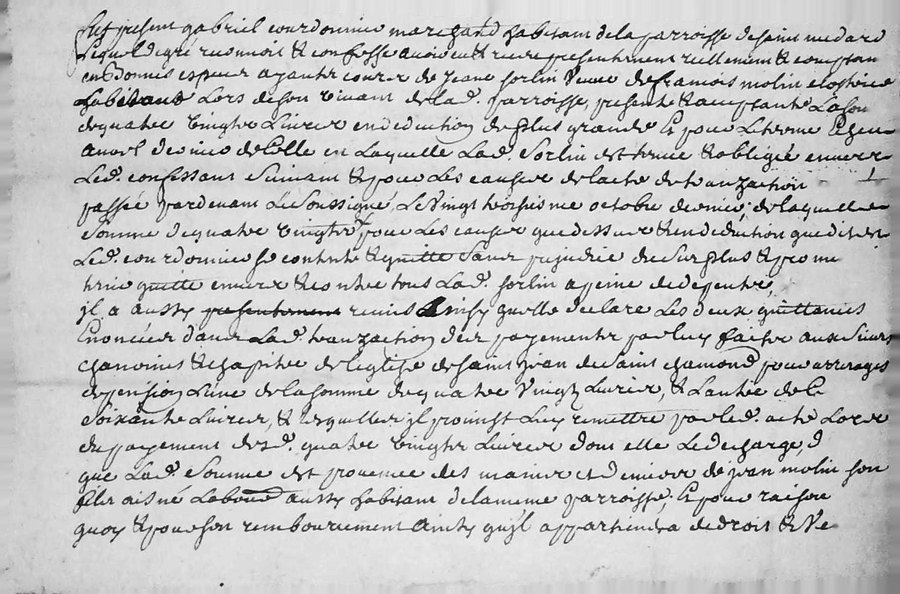 fut present gabriel courdonnier marchand habitant de la parroisse de saint medard
Lequel de gré reconnoit & confesse avoir eu & receu presentement reellement & comptan
en bonnes especes ayants cours de Jeane sorlin veuve de francois molin
habitans Lors de son vivant de lad. parroisse, presente & acceptante La som
de quatre vingts Livres en deduction de plus grande Et pour Le terme
de noel en Laquelle Lad. Sorlin est tenue & obligée envers
Led. confessant Suivant & pour Les causes de lacte de tranzaction
passée pardevant Le Soussigné, Le vingt troisiesme octobre dernier, de laquelle
Somme de quatre vingts pour Les causes que dessus & en deduction que dit est
Led. courdonnier se contente & quitte Sans prejudice du Surplus & prome
tenir quitte envers & contre tous Lad. sorlin a peine de depens,
jl a aussy presentement remis ainsy quelle declare Les deux quittances
Enoncées dans Lad. tranzaction des payements par luy faits aux Sieurs
chanoines & chapitre de Leglise de Saint jean de Saint chamond pour arrerages
de pension Lune de la somme de quatre vingt Livres, & Lautre de
Soixante Livres, & lesquelles jl promist Luy remettre par led. acte Lors
du payement desd. quatre vingts Livres dont elle Le decharge,
que Lad. Somme est provenue des mains et deniers de jean molin son
fils aisne Laboureur aussy habitant de la meme parroisse, Et pour raison
quoy & pour son remboursement ainsy qu'jl appartiendra de droit & Ve